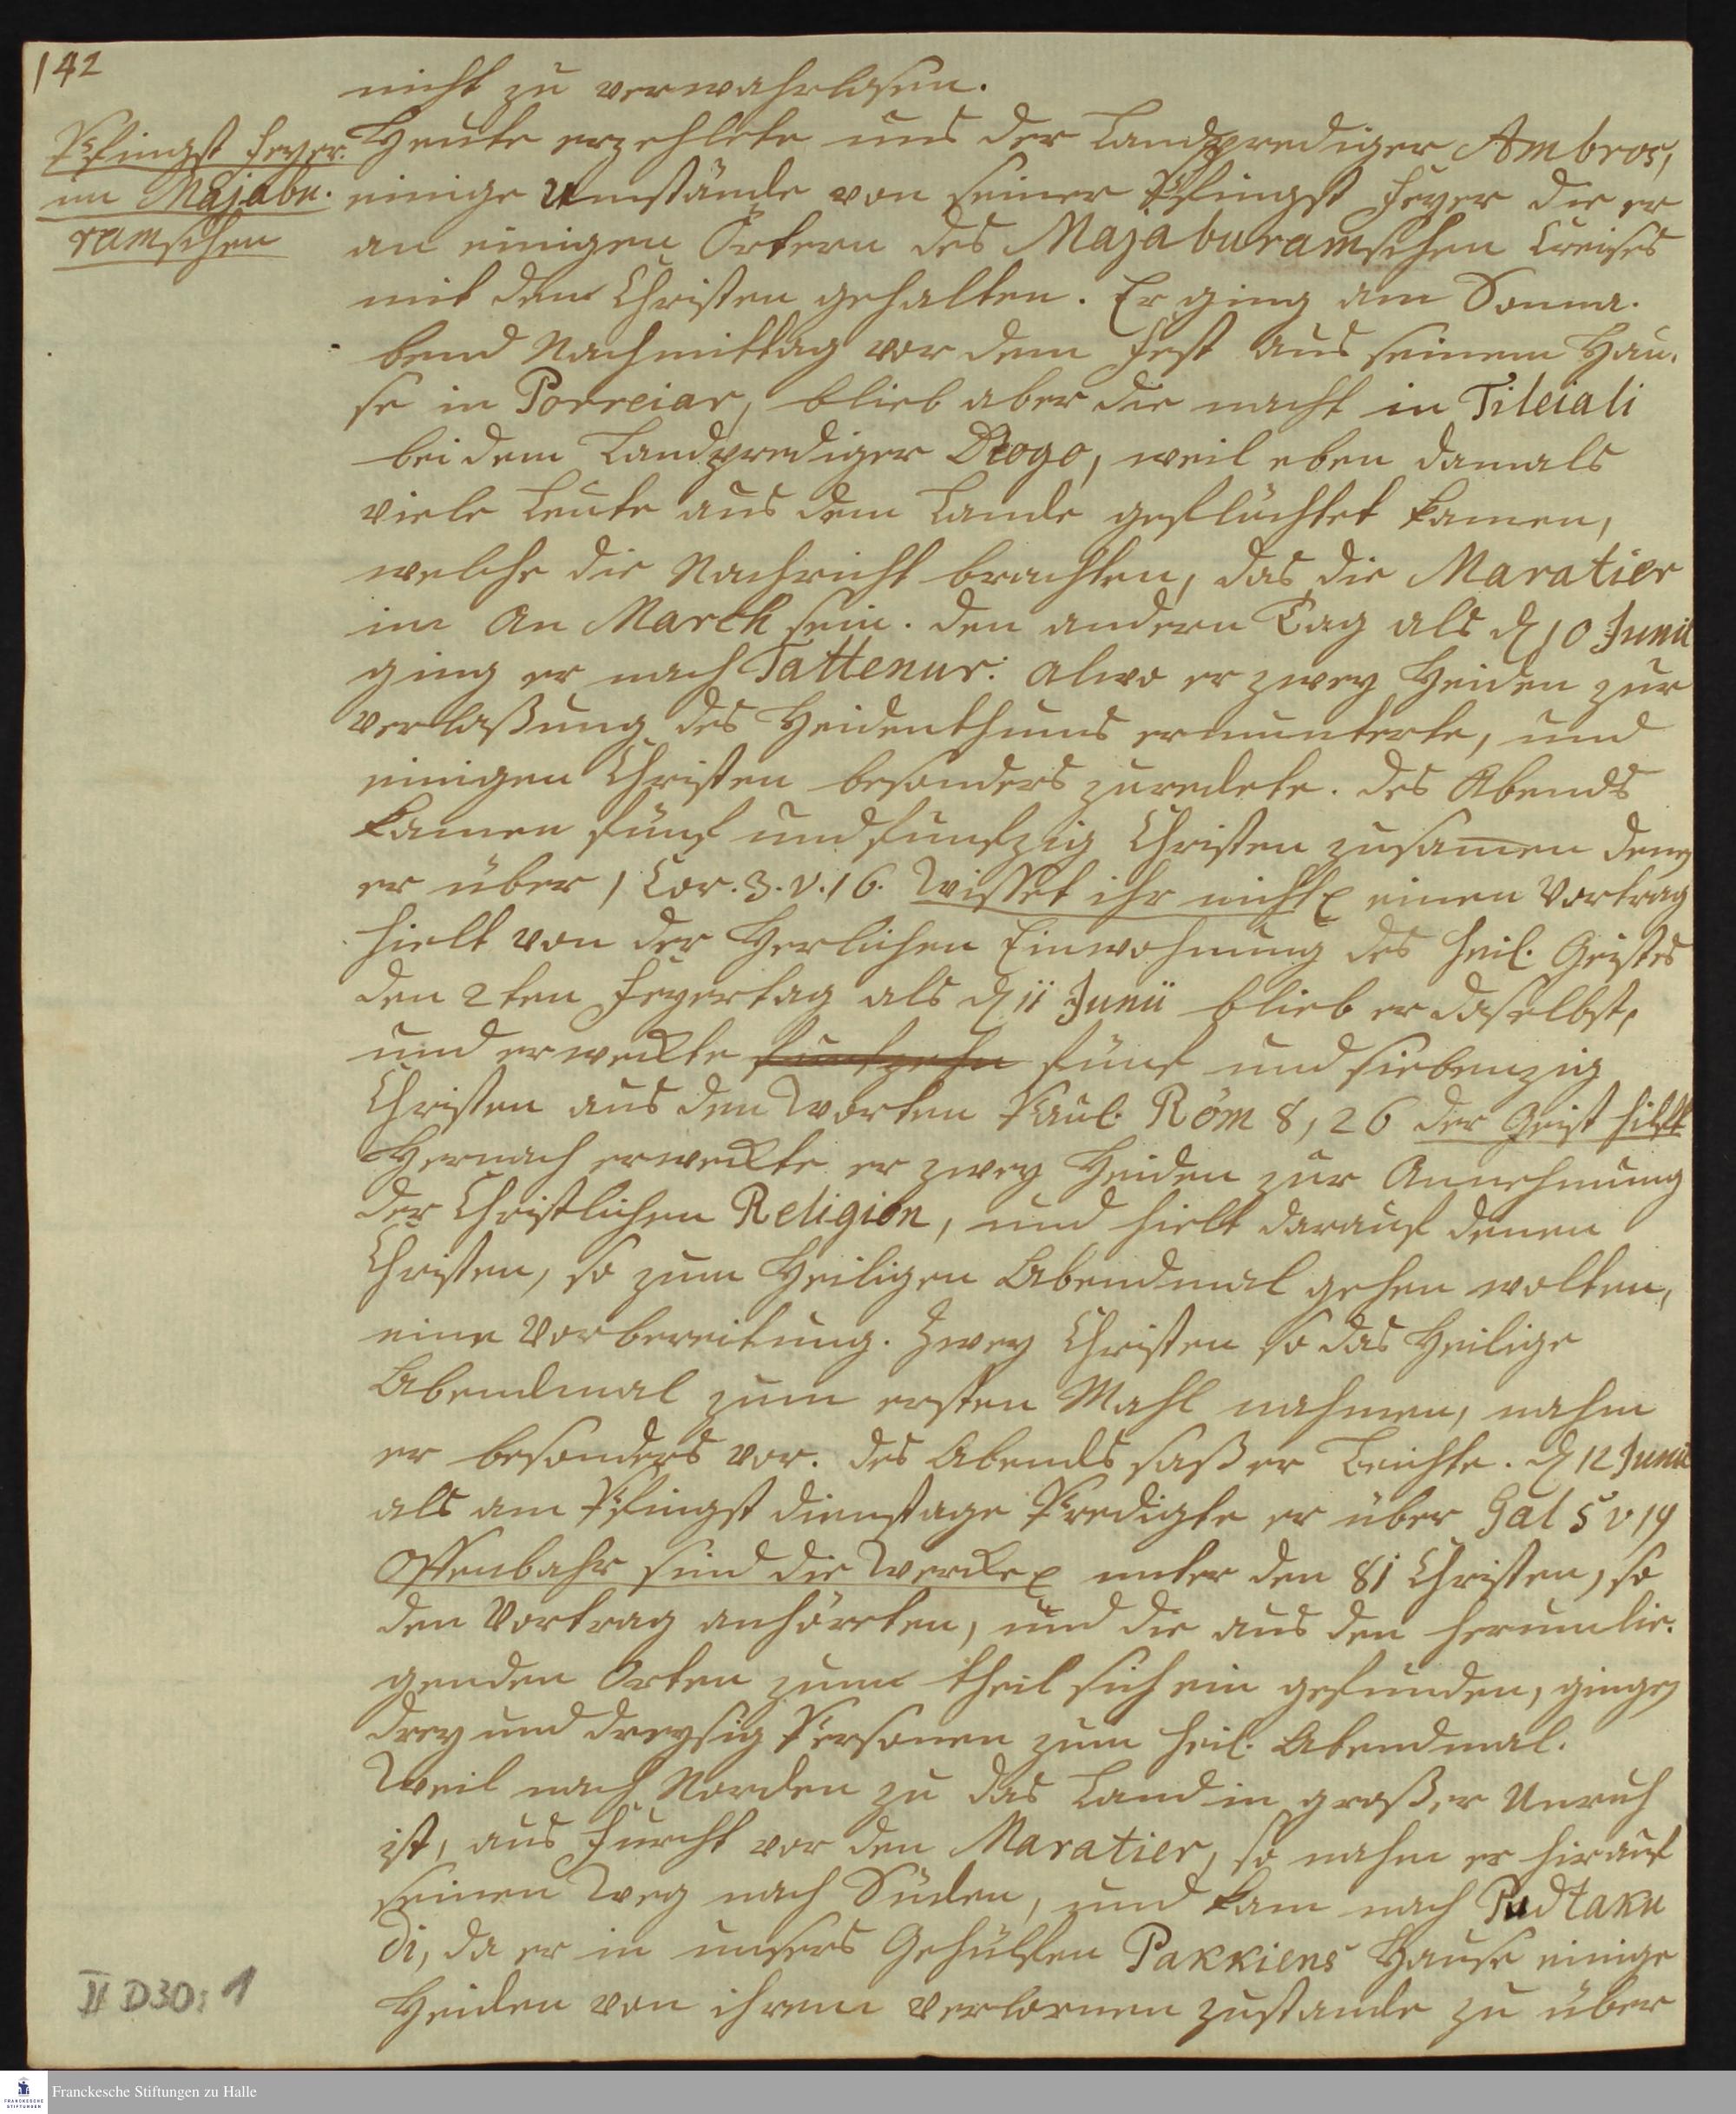 142
nicht zu verwahrlosen.
Pfingst Feyer.
im Majabu.
ramschen
Heute erzehlete uns der Landprediger Ambros,
einige Umstände von seiner Pfingst Feyer die er
an einigen Örtern des Majaburamschen Creises
mit den Christen gehalten. Er ging am Sonna.
bend Nachmittag vor dem Fest aus seinem Hau.
se in Porreiar, blieb aber die nacht in Tileiali
bei dem Landprediger Diogo, weil eben damals
viele Leute aus dem Lande geflüchtet kamen,
welche die Nachricht brachten, das die Maratier
im An March sein. den andern Tag als d 10 Junii
ging er nach Tattenur: alwo er zwey Heiden zur
verlaßung des Heidenthums ermunterte, und
einigen Christen besonders zuredete. des Abends
kamen fünf und funfzig Christen zusamen denen
er über 1 Cor. 3. v. 16. Wisset ihr nicht einen Vortrag
hielt von der Herlichen Einwohnung des heil. Geistes
den 2ten Feyertag als d 11 Junii blieb er daselbst,
und erwekte funfzehn fünf und siebenzig
Christen aus den Worten Paul. Röm 8, 26 der Geist hilft
Hernach erwekte er zwey Heiden zur Annehmung
der Christlichen Religion, und hielt darauf denen
Christen, so zum Heiligen Abendmal gehen wolten,
eine Vorbereitung. Zwey Christen so das Heilige
Abendmal zum ersten Mahl nahmen, nahm
er besonders vor. des Abends saß er Beichte. d 12 Junii
als am Pfingst dienstage Predigte er über Gal 5 v 19
Offenbahr sind die Werke unter den 81 Christen, so
den Vortrag anhörten, und die aus den herumlie.
genden Orten zum theil sich ein gefunden, gingen
drey und dreysig Personen zum heil. Abendmal.
Weil nach Norden zu das Land in großer Unruh
ist, aus Furcht vor den Maratier, so nahm er hirauf
seinen Weg nach Süden, und kam nach Pudtaku
di, da er in unsers Gehülfen Pakkiens Hause einige
Heiden von ihrem verlornen zustande zu über
II D30: 1
FRANCKESCHE
STIFTUNGEN
Franckesche Stiftungen zu Halle